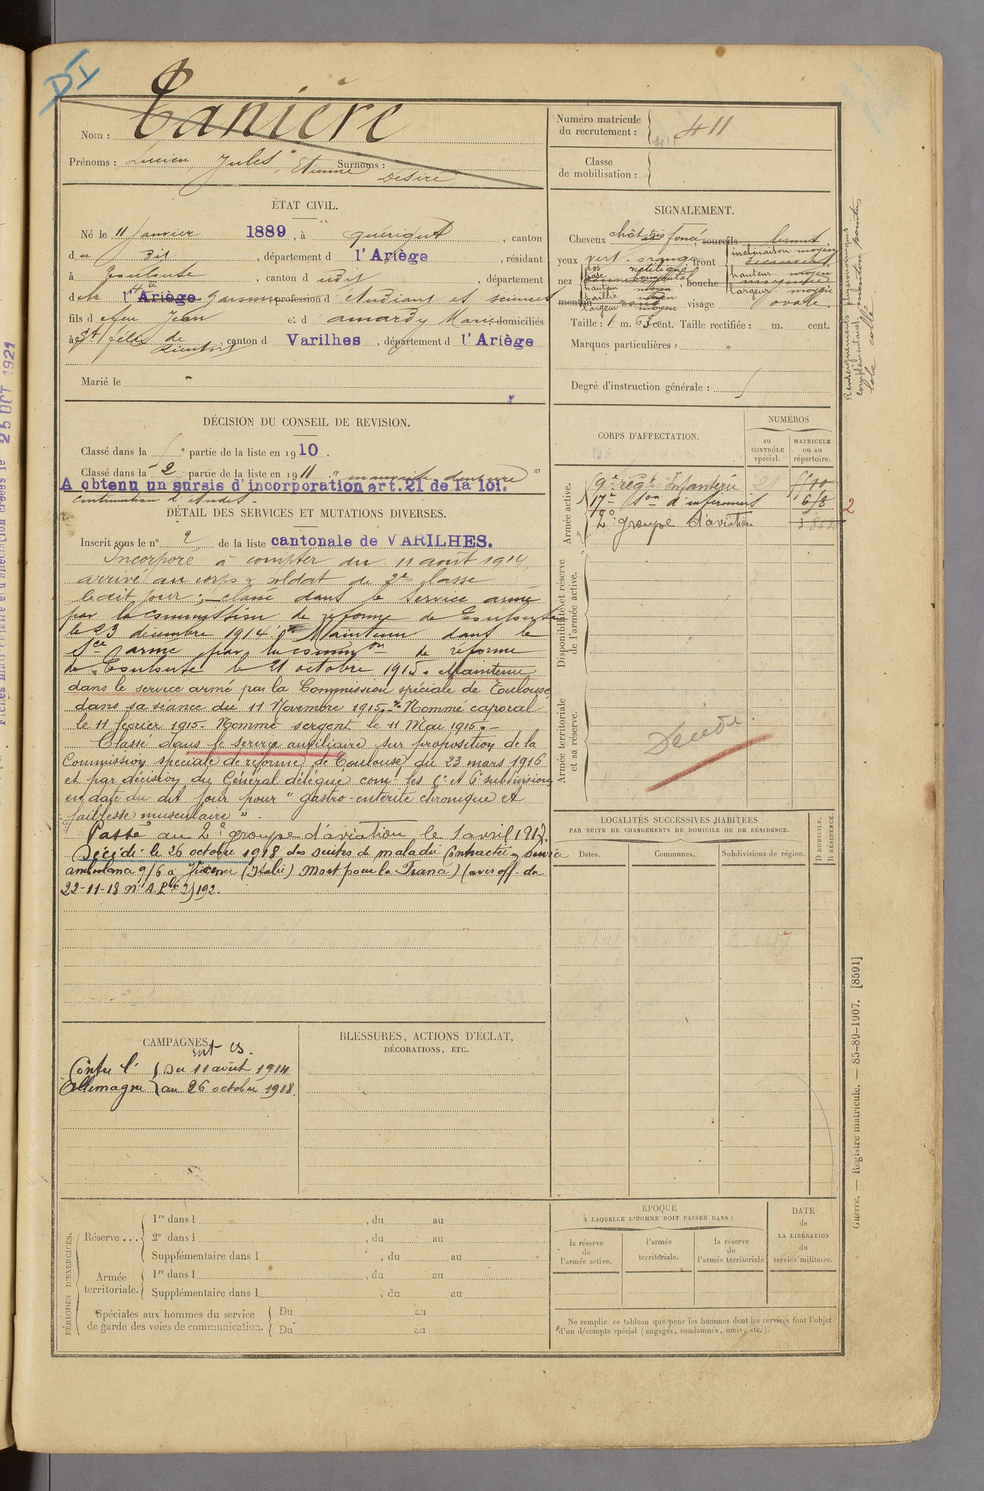 DI
Nom : Tanière
Prénoms : Lucien Jules, Etienne Surnoms :
Désiré
Numéro matricule
du recrutement : 411
Classe
de mobilisation :
ÉTAT CIVIL.
Né le 11 janvier 1889, à Quérigut, canton
du dit, département d l'Ariège, résidant
à Toulouse, canton d udit, département
d l'Ariège profession d'étudiant ès sciences
fils d feu Jean et d Amardy Marie domiciliés
à St Félix de
Rieutord, canton d Varilhes, département d l'Ariège
Marié le
SIGNALEMENT.
Cheveux chât très foncé sourcils bruns
yeux vert orangé front inclinaison moyen
nez dos rectiligne bouche hauteur moyen
base hauteur moyen largeur moyen
menton rond visage ovale
Taille : 1 m. cent. Taille rectifiée : m. cent.
Marques particulières : "
Degré d'instruction générale :
Renseignements physionomiques
complémentaires
DÉCISION DU CONSEIL DE REVISION.
Classé dans la partie de la liste en 1910.
Classé dans la 2 partie de la liste en 1911
A obtenu un sursis d'incorporation art. 21 de la loi.
continuation d'études.
DÉTAIL DES SERVICES ET MUTATIONS DIVERSES.
Inscrit sous le n° 2 de la liste cantonale de VARILHES.
Incorporé à compter du 11 août 1914
arrivé au corps & soldat de 2e classe
ledit jour ; classé dans le service armé
par la Commission de réforme de Toulouse
le 23 décembre 1914. Maintenu dans le
Sce armé par la common de réforme
de Toulouse le 21 octobre 1915. Maintenu
dans le service armé par la Commission spéciale de Toulouse
dans sa séance du 11 Novembre 1915. Nommé caporal
le 11 février 1915. Nommé sergent le 11 Mai 1915.
Classé dans le service auxiliaire sur proposition de la
Commission spéciale de réforme de Toulouse du 23 mars 1916
et par décision du Général délégué com les 5e et 6e subdivisions
en date du dit jour pour "gastro-entérite chronique et
faiblesse musculaire".
Passé au 2e groupe d'aviation le 1 avril 1917.
Décédé le 26 octobre 1918 des suites de maladie contractée en service
ambulance 9/6 à Vicence (Italie) Mort pour la France) (avis off. du
22-11-18 n°
CAMPAGNES
Contre l'
Allemagne
Du 11 août 1914
au 26 octobre 1918.
BLESSURES, ACTIONS D'ÉCLAT,
DÉCORATIONS, ETC.
CORPS D'AFFECTATION.
NUMÉROS
au
CONTRÔLE
spécial.
MATRICULE
ou au
répertoire.
Armée active.
9e régt Infanterie
17e Son d'infirmiers
2e groupe d'aviation
2
Disponibilité et réserve
de l'armée active.
Armée territoriale
et sa réserve.
Décédé.
LOCALITÉS SUCCESSIVES HABITÉES
PAR SUITE DE CHANGEMENTS DE DOMICILE OU DE RÉSIDENCE.
Dates.
Communes.
Subdivisions de région.
D DOMICILE.
R RÉSIDENCE.
PÉRIODES D'EXERCICES.
Réserve ...
1re dans l , du au
2e dans l , du au
Supplémentaire dans l , du au
Armée
territoriale.
1re dans l , du au
Supplémentaire dans l , du au
Spéciales aux hommes du service
de garde des voies de communication.
Du au
Du au
ÉPOQUE
À LAQUELLE L'HOMME DOIT PASSER DANS :
la réserve
de
l'armée active.
l'armée
territoriale.
la réserve
de
l'armée territoriale
DATE
de
LA LIBÉRATION
du
service militaire.
Ne remplir ce tableau que pour les hommes dont les services font l'objet
d'un décompte spécial (engagés, condamnés, omis, etc.).
Guerre. — Registre matricule. — 85-89-1907. [8591]
25 OCT 1921